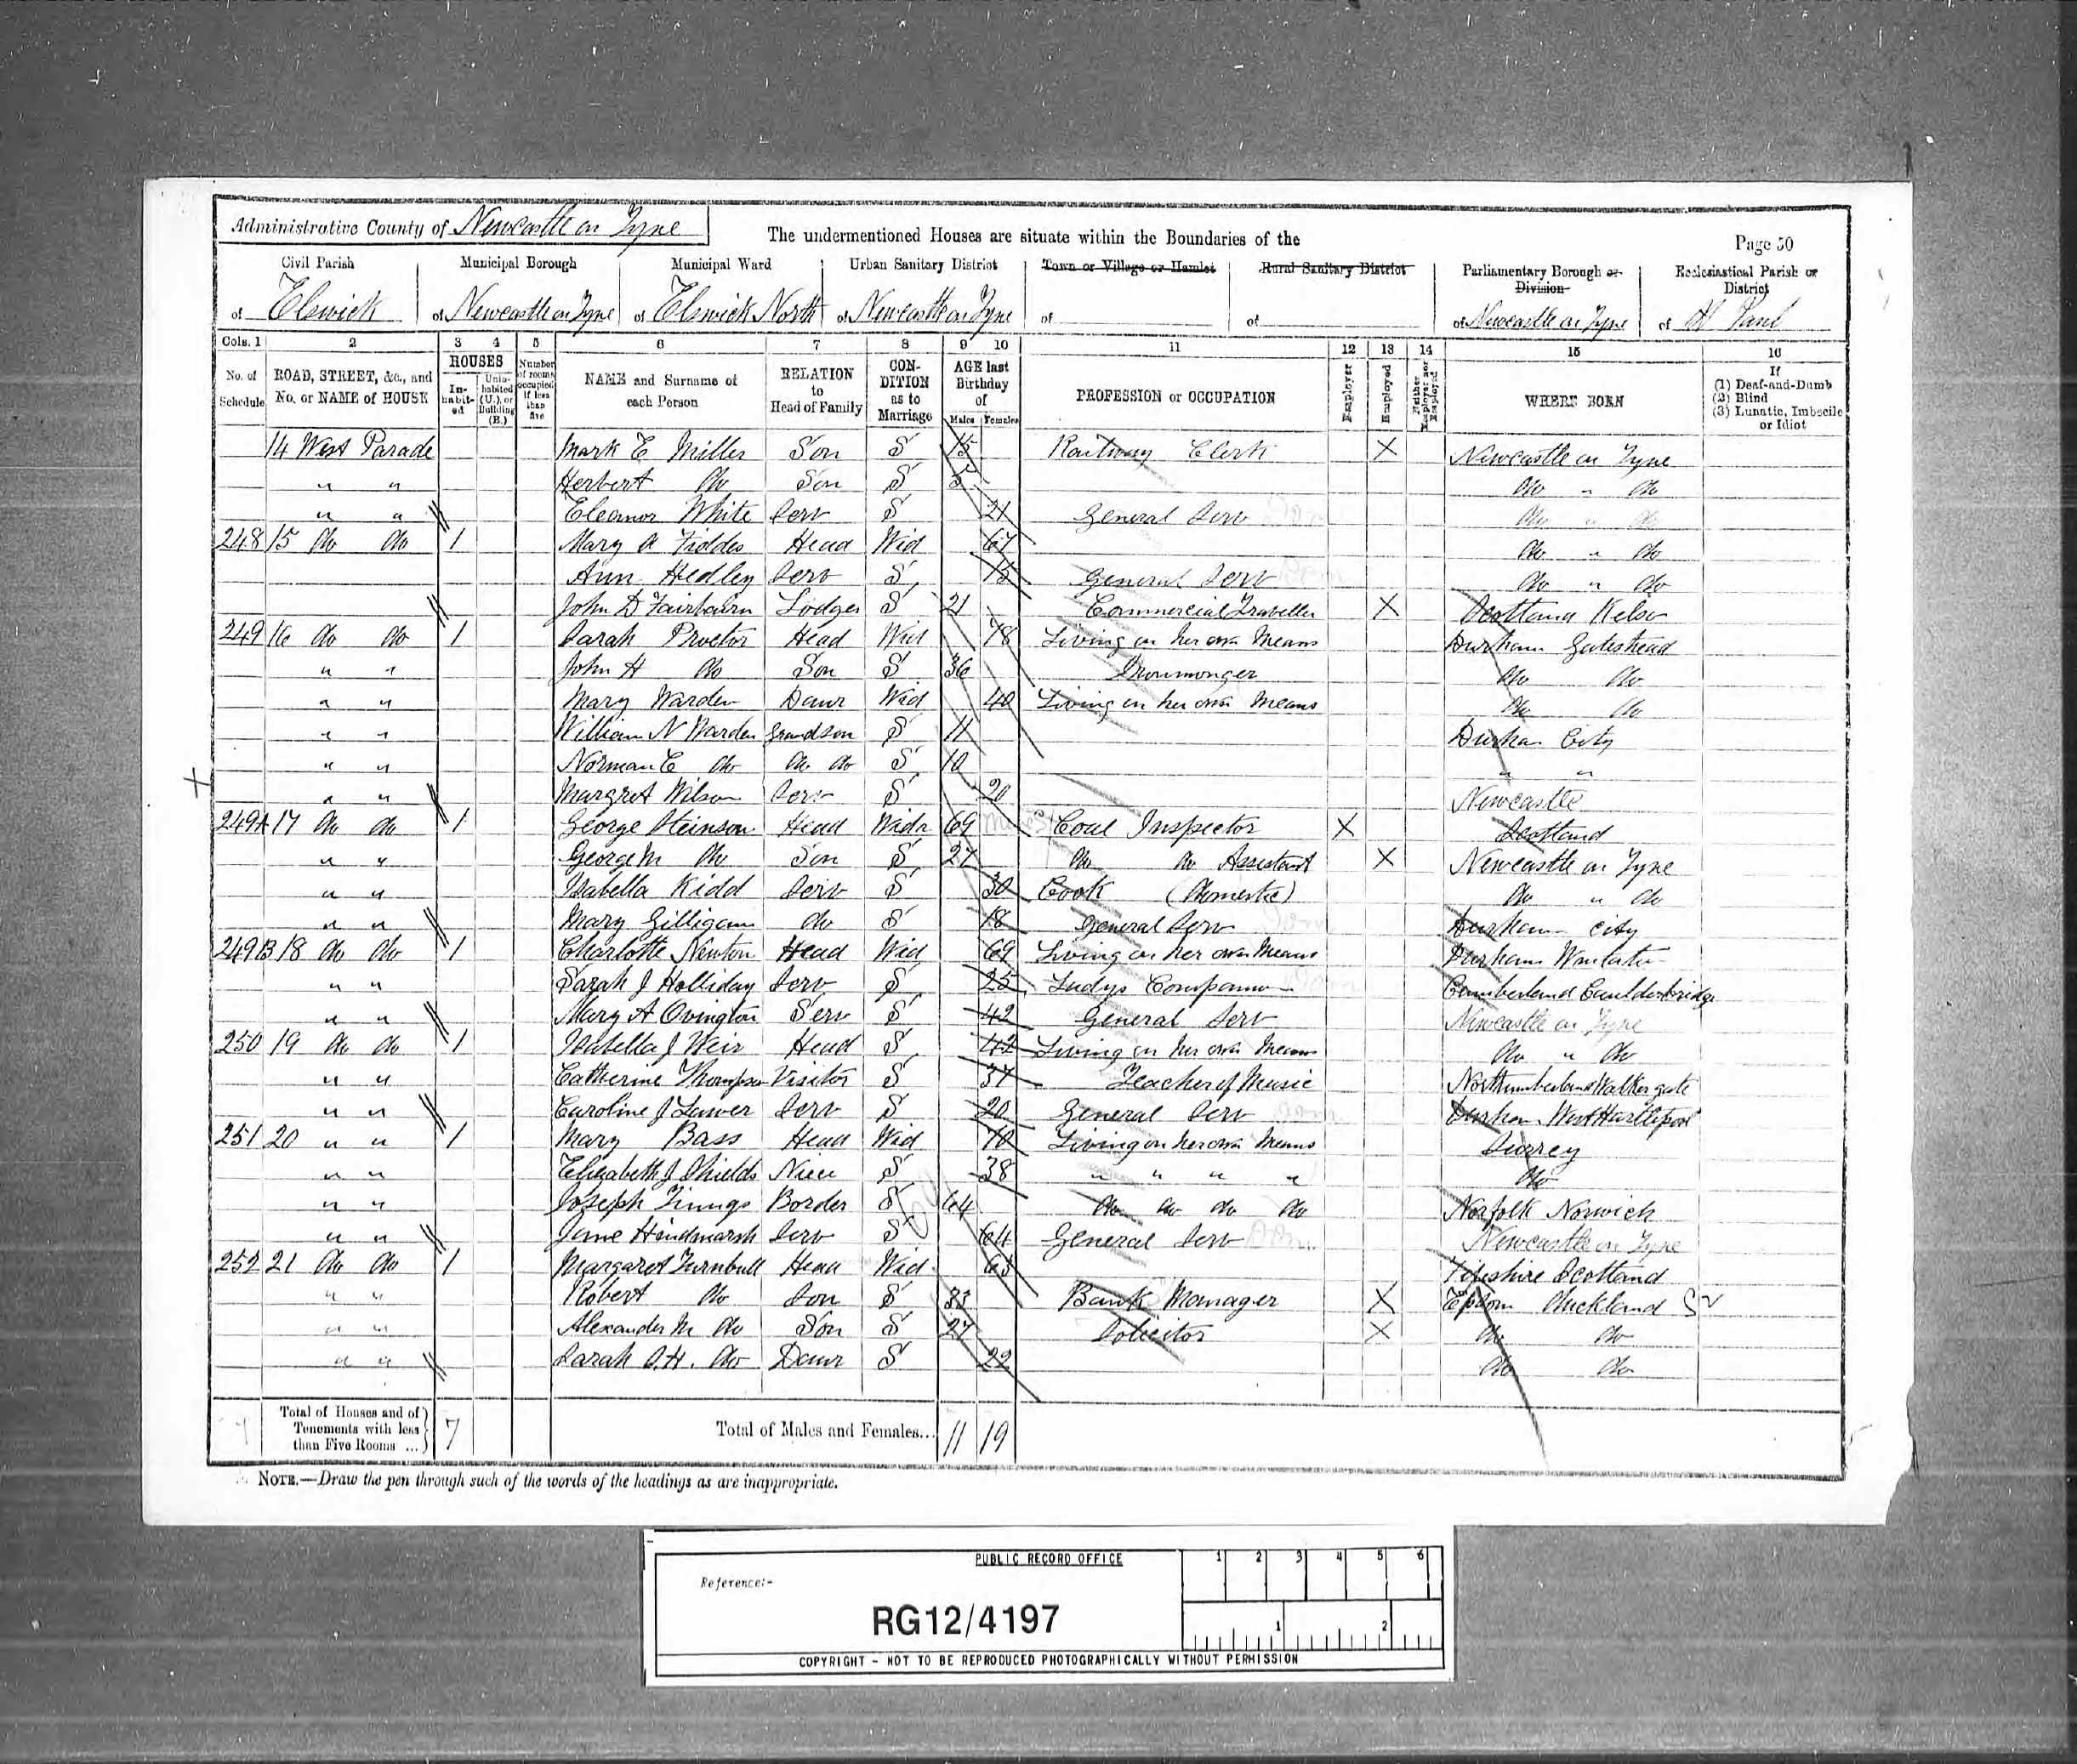 Administrative County of Newcastle on Tyne
The undermentioned Houses are situate within the Boundaries of the
Page 50
Civil Parish Municipal Borough Municipal Ward Urban Sanitary District Town or Village or Hamlet Rural Sanitary District Parliamentary Borough or Division Ecclesiastical Parish or District
of Elswick of Newcastle on Tyne of Elswick North of Newcastle on Tyne of of of Newcastle on Tyne of St Paul
Cols. 1 2 3 4 5 6 7 8 9 10 11 12 13 14 15 16
No. of Schedule ROAD, STREET, &c., and No. or NAME of HOUSE HOUSES Inhabited Uninhabited (U.), or Building (B.) Number of rooms occupied if less than five NAME and Surname of each Person RELATION to Head of Family CONDITION as to Marriage AGE last Birthday of Males Females PROFESSION or OCCUPATION Employer Employed Neither Employer nor Employed WHERE BORN If (1) Deaf-and-Dumb (2) Blind (3) Lunatic, Imbecile or Idiot
14 West Parade Mark E Miller Son S 15 Railway Clerk X Newcastle on Tyne
" " Herbert Do Son S 5 Do " Do
" " Eleanor White Serv S 21 General Serv Do " Do
248 15 Do Do 1 Mary A Fiddes Head Wid 67 Do " Do
Ann Hedley Serv S 15 General Serv Do " Do
John D Fairbairn Lodger S 21 Commercial Traveller X Scotland Kelso
249 16 Do Do 1 Sarah Proctor Head Wid 78 Living on her own Means Durham Gateshead
" " John H Do Son S 36 Ironmonger Do Do
" " Mary Warden Daur Wid 40 Living on her own Means Do Do
" " William N Warden Grandson S 11 Durham City
" " Norman C Do Do Do S 10 " "
" " Margret Wilson Serv S 20 Newcastle
249A 17 Do Do 1 George Steinson Head Widr 69 Coal Inspector X Scotland
" " George M Do Son S 27 Do Do Assistant X Newcastle on Tyne
" " Isabella Kidd Serv S 30 Cook (Domestic) Do " Do
" " Mary Gilligan Do S 18 General Serv Durham City
249B 18 Do Do 1 Charlotte Newton Head Wid 69 Living on her own Means Durham
" " Sarah J Holliday Serv S 25 Ladys Companion Cumberland
" " Mary A Ovington Serv S 42 General Serv Newcastle on Tyne
250 19 Do Do 1 Isabella J Weir Head S 42 Living on her own Means Do " Do
" " Catherine Thompson Visitor S 37 Teacher of Music Northumberland Walkergate
" " Caroline J Serv S 20 General Serv Durham West Hartlepool
251 20 " " 1 Mary Bass Head Wid 70 Living on her own Means Surrey
" " Elizabeth J Shields Niece S 38 " " " " Do
" " Joseph Border S 64 Do Do Do Do Norfolk Norwich
" " Jane Hindmarsh Serv S 64 General Serv Dom Newcastle on Tyne
252 21 Do Do 1 Margaret Turnbull Head Wid 63 Fifeshire Scotland
" " Robert Do Son S 33 Bank Manager X Epsom Auckland
" " Alexander M Do Son S 27 Solicitor X Do Do
" " Sarah Do Daur S 22 Do Do
Total of Houses and of Tenements with less than Five Rooms ... 7 Total of Males and Females... 11 19
NOTE.—Draw the pen through such of the words of the headings as are inappropriate.
PUBLIC RECORD OFFICE
1 2 3 4 5 6
Reference:-
RG12/4197
1 2
COPYRIGHT - NOT TO BE REPRODUCED PHOTOGRAPHICALLY WITHOUT PERMISSION